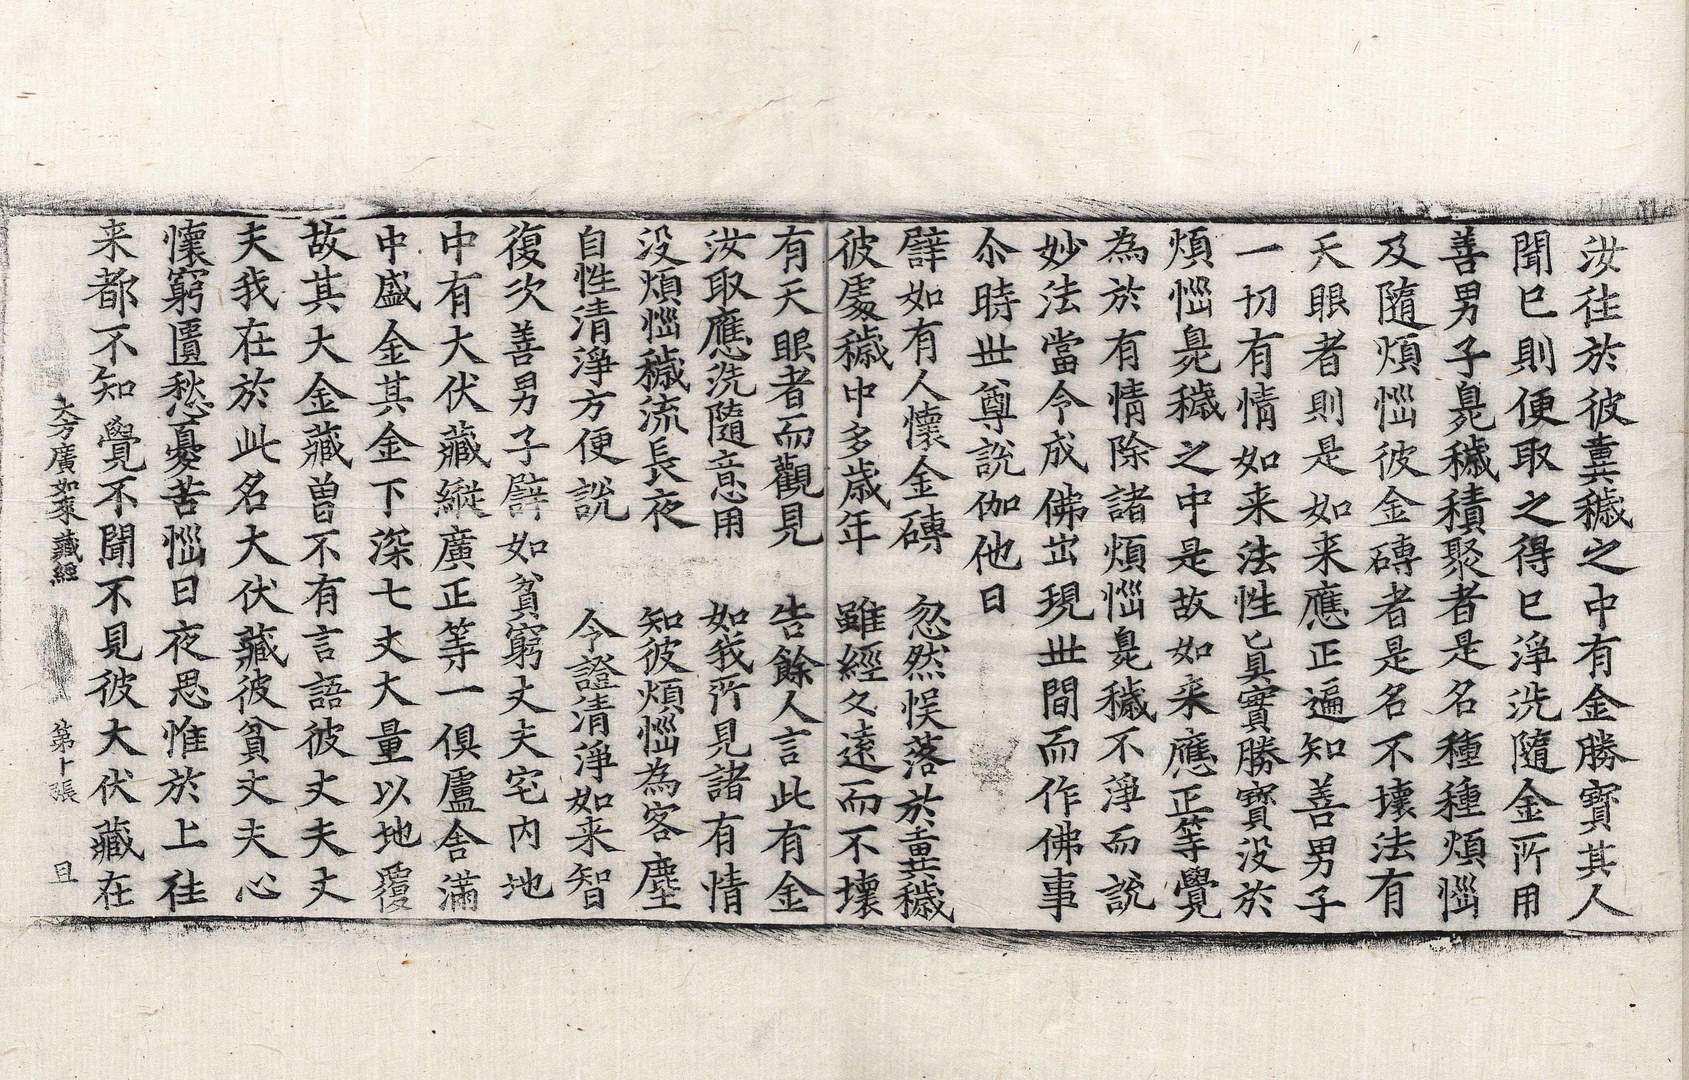 汝往於彼糞穢之中有金勝寶其人
聞已則便取之得已淨洗隨金所用
善男子臰穢積聚者是名種種煩惱
及隨煩惱彼金磚者是名不壞法有
天眼者則是如来應正遍知善男子
一切有情如来法性真實勝寶没於
煩惱臰穢之中是故如来應正等覺
為於有情除諸煩惱臰穢不淨而說
妙法當令成佛出現世間而作佛事
尒時世尊說伽他曰
譬如有人懷金磚　忽然悮落於糞穢
彼處穢中多歲年　雖經久遠而不壞
有天眼者而觀見　告餘人言此有金
汝取應洗隨意用　如我所見諸有情
没煩惱穢流長夜　知彼煩惱為客塵
自性清淨方便說　令證清淨如来智
復次善男子譬如貧窮丈夫宅内地
中有大伏藏縱廣正等一俱盧舍滿
中盛金其金下深七丈大量以地覆
故其大金藏曽不有言語彼丈夫丈
夫我在於此名大伏藏彼貧丈夫心
懷窮匱愁憂苦惱日夜思惟於上往
来都不知覺不聞不見彼大伏藏在
大方廣如来藏經　第卜張　旦